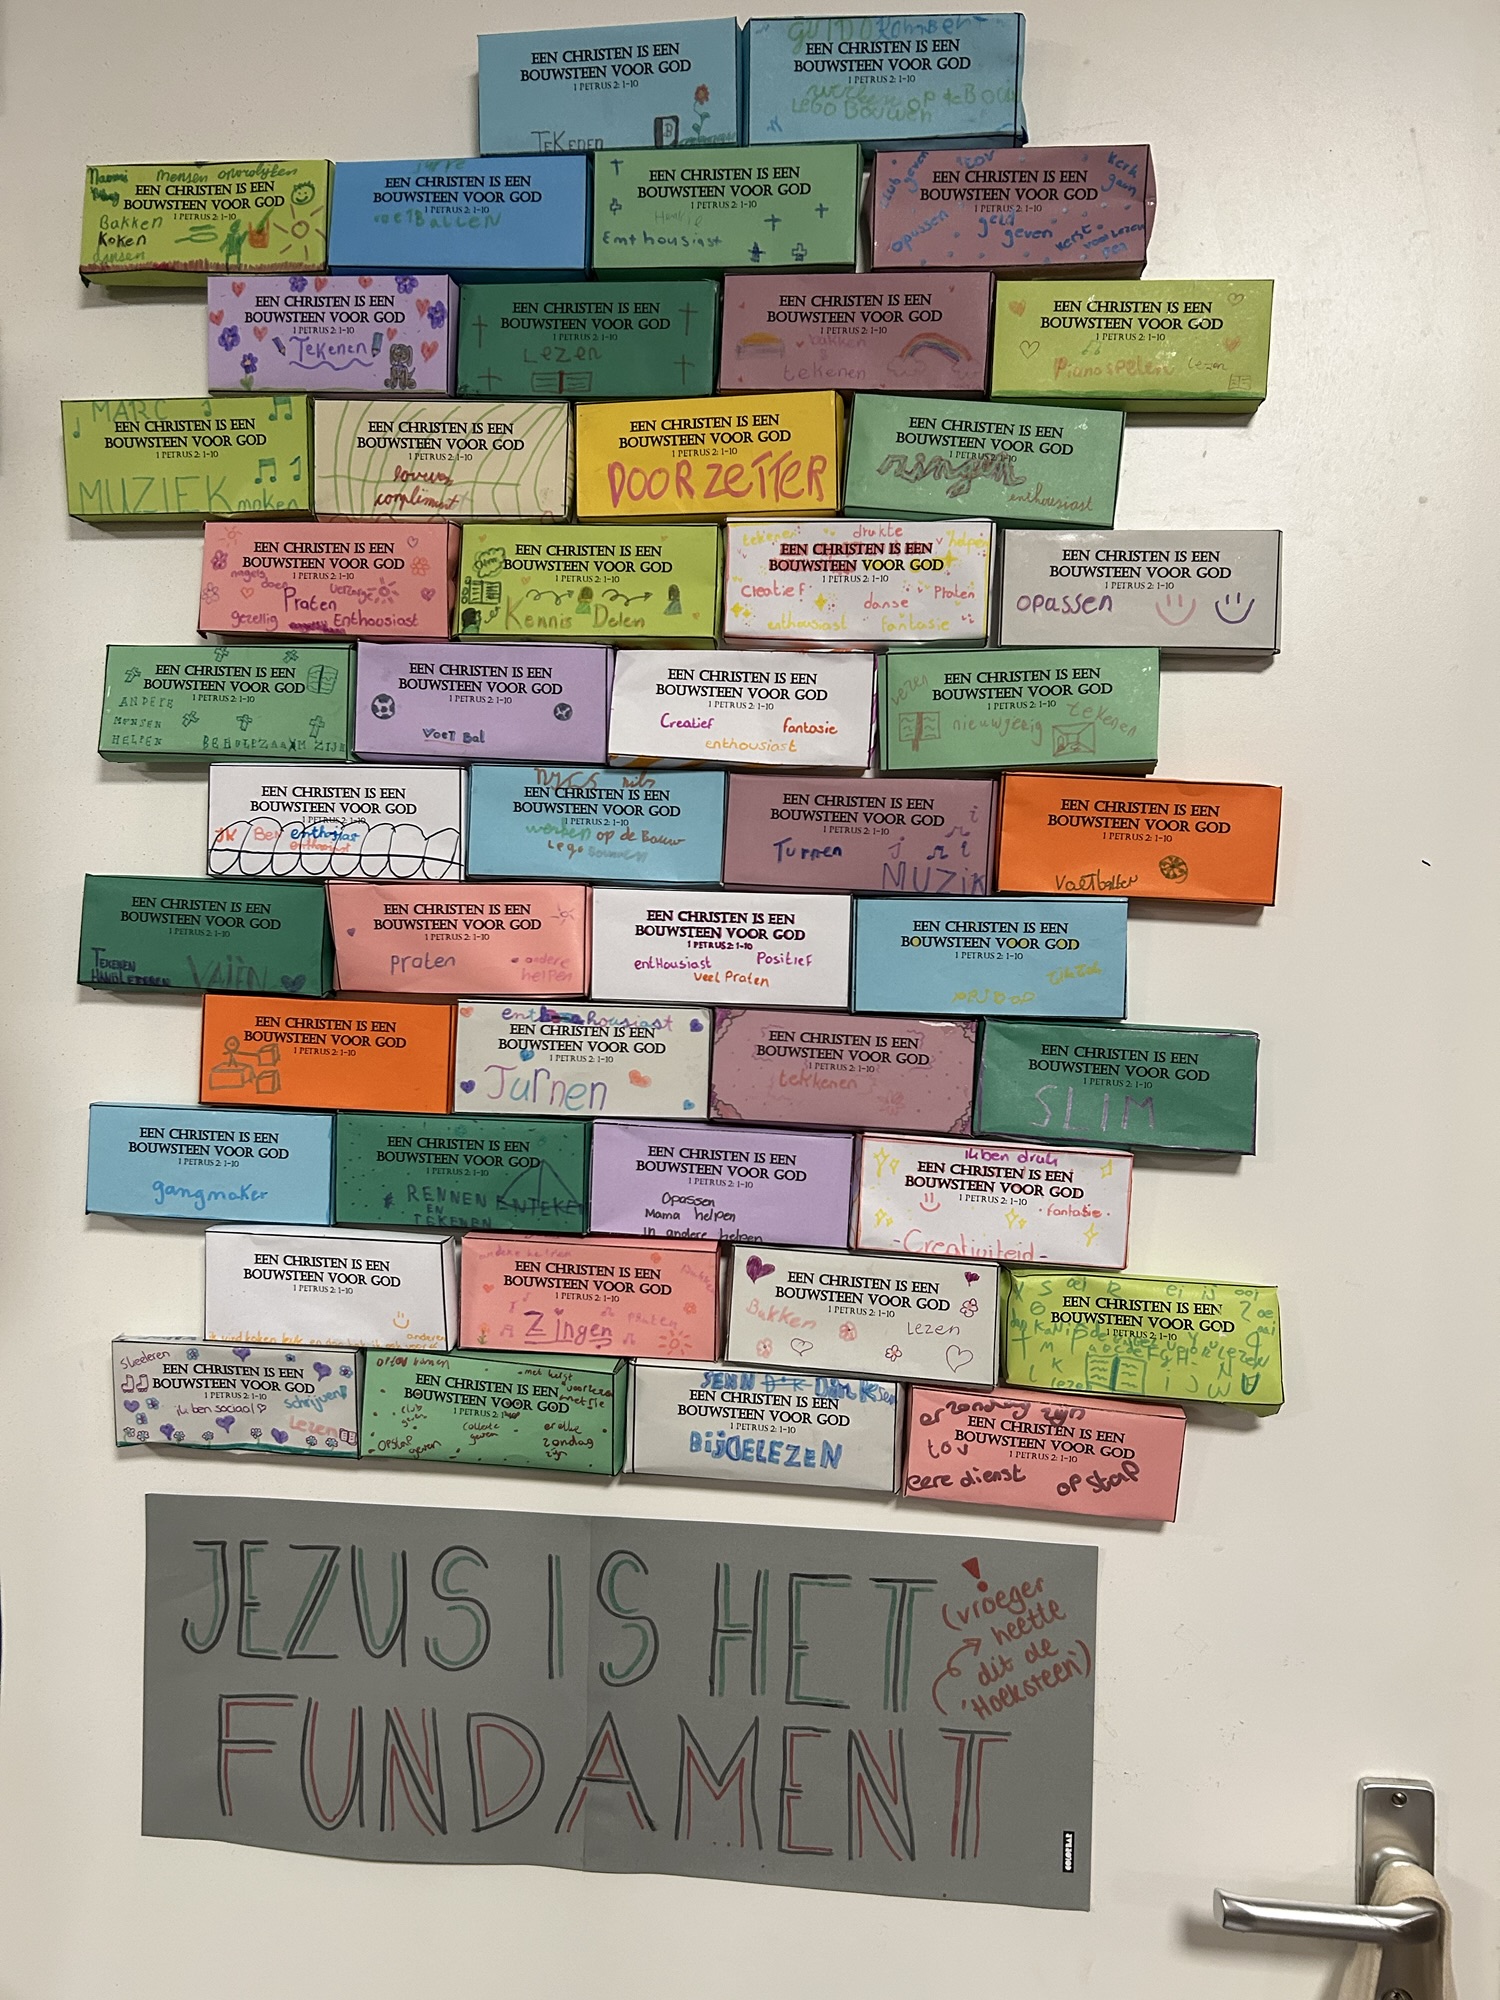 EEN CHRISTEN IS EEN
BOUWSTEEN VOOR GOD
1 PETRUS 2: 1-10
TEKENEN
GUIDO
EEN CHRISTEN IS EEN
BOUWSTEEN VOOR GOD
1 PETRUS 2: 1-10
werken op de Bouw
LEGO BOUWEN
Naomi
mensen opvrolijken
EEN CHRISTEN IS EEN
BOUWSTEEN VOOR GOD
1 PETRUS 2: 1-10
Bakken
Koken
dansen
EEN CHRISTEN IS EEN
BOUWSTEEN VOOR GOD
1 PETRUS 2: 1-10
voetBallen
EEN CHRISTEN IS EEN
BOUWSTEEN VOOR GOD
1 PETRUS 2: 1-10
Emthousiast
club geven
TOV
kerk gaan
EEN CHRISTEN IS EEN
BOUWSTEEN VOOR GOD
1 PETRUS 2: 1-10
opassen
geld geven
kerst
voorlezen
EEN CHRISTEN IS EEN
BOUWSTEEN VOOR GOD
1 PETRUS 2: 1-10
Tekenen
EEN CHRISTEN IS EEN
BOUWSTEEN VOOR GOD
1 PETRUS 2: 1-10
LEZEN
EEN CHRISTEN IS EEN
BOUWSTEEN VOOR GOD
1 PETRUS 2: 1-10
bakken
tekenen
EEN CHRISTEN IS EEN
BOUWSTEEN VOOR GOD
1 PETRUS 2: 1-10
Pianospelen
Lezen
MARC
EEN CHRISTEN IS EEN
BOUWSTEEN VOOR GOD
1 PETRUS 2: 1-10
MUZIEK maken
EEN CHRISTEN IS EEN
BOUWSTEEN VOOR GOD
1 PETRUS 2: 1-10
compliment
EEN CHRISTEN IS EEN
BOUWSTEEN VOOR GOD
1 PETRUS 2: 1-10
DOORZETTER
EEN CHRISTEN IS EEN
BOUWSTEEN VOOR GOD
1 PETRUS 2: 1-10
zingen
enthousiast
EEN CHRISTEN IS EEN
BOUWSTEEN VOOR GOD
1 PETRUS 2: 1-10
nagels
doen
Praten
gezellig
Enthousiast
EEN CHRISTEN IS EEN
BOUWSTEEN VOOR GOD
1 PETRUS 2: 1-10
Kennis Delen
tekenen
drukte
helpen
EEN CHRISTEN IS EEN
BOUWSTEEN VOOR GOD
1 PETRUS 2: 1-10
Creatief
danse
Praten
enthousiast
fantasie
EEN CHRISTEN IS EEN
BOUWSTEEN VOOR GOD
1 PETRUS 2: 1-10
opassen
EEN CHRISTEN IS EEN
BOUWSTEEN VOOR GOD
1 PETRUS 2: 1-10
ANDERE
MENSEN
HELPEN
ZIJN
EEN CHRISTEN IS EEN
BOUWSTEEN VOOR GOD
1 PETRUS 2: 1-10
Voet Bal
EEN CHRISTEN IS EEN
BOUWSTEEN VOOR GOD
1 PETRUS 2: 1-10
Creatief
fantasie
enthousiast
EEN CHRISTEN IS EEN
BOUWSTEEN VOOR GOD
1 PETRUS 2: 1-10
lezen
nieuwgierig
tekenen
EEN CHRISTEN IS EEN
BOUWSTEEN VOOR GOD
1 PETRUS 2: 1-10
ik Ben
EEN CHRISTEN IS EEN
BOUWSTEEN VOOR GOD
1 PETRUS 2: 1-10
werken op de Bouw
Lego bouwen
EEN CHRISTEN IS EEN
BOUWSTEEN VOOR GOD
1 PETRUS 2: 1-10
Turnen
MUZIK
EEN CHRISTEN IS EEN
BOUWSTEEN VOOR GOD
1 PETRUS 2: 1-10
EEN CHRISTEN IS EEN
BOUWSTEEN VOOR GOD
1 PETRUS 2: 1-10
TEKENEN
EEN CHRISTEN IS EEN
BOUWSTEEN VOOR GOD
1 PETRUS 2: 1-10
praten
andere
helpen
EEN CHRISTEN IS EEN
BOUWSTEEN VOOR GOD
1 PETRUS 2: 1-10
entHousiast
Positief
veel Praten
EEN CHRISTEN IS EEN
BOUWSTEEN VOOR GOD
EEN CHRISTEN IS EEN
BOUWSTEEN VOOR GOD
1 PETRUS 2: 1-10
EEN CHRISTEN IS EEN
BOUWSTEEN VOOR GOD
1 PETRUS 2: 1-10
Turnen
EEN CHRISTEN IS EEN
BOUWSTEEN VOOR GOD
1 PETRUS 2: 1-10
tekkenen
EEN CHRISTEN IS EEN
BOUWSTEEN VOOR GOD
1 PETRUS 2: 1-10
SLIM
EEN CHRISTEN IS EEN
BOUWSTEEN VOOR GOD
1 PETRUS 2: 1-10
gangmaker
EEN CHRISTEN IS EEN
BOUWSTEEN VOOR GOD
1 PETRUS 2: 1-10
RENNEN
EN
TEKENEN
EEN CHRISTEN IS EEN
BOUWSTEEN VOOR GOD
1 PETRUS 2: 1-10
Opassen
Mama helpen
in andere helpen
ik ben druk
EEN CHRISTEN IS EEN
BOUWSTEEN VOOR GOD
1 PETRUS 2: 1-10
• fantasie •
-Creativiteid-
EEN CHRISTEN IS EEN
BOUWSTEEN VOOR GOD
1 PETRUS 2: 1-10
EEN CHRISTEN IS EEN
BOUWSTEEN VOOR GOD
1 PETRUS 2: 1-10
praten
Zingen
EEN CHRISTEN IS EEN
BOUWSTEEN VOOR GOD
1 PETRUS 2: 1-10
Bakken
Lezen
EEN CHRISTEN IS EEN
BOUWSTEEN VOOR GOD
1 PETRUS 2: 1-10
EEN CHRISTEN IS EEN
BOUWSTEEN VOOR GOD
1 PETRUS 2: 1-10
ik ben sociaal
schrijven
Lezen
EEN CHRISTEN IS EEN
BOUWSTEEN VOOR GOD
1 PETRUS 2: 1-10
collecte
geven
zondag
zijn
EEN CHRISTEN IS EEN
BOUWSTEEN VOOR GOD
1 PETRUS 2: 1-10
BijBELEZEN
er zondag zijn
EEN CHRISTEN IS EEN
BOUWSTEEN VOOR GOD
1 PETRUS 2: 1-10
tov
eere dienst
opstap
JEZUS IS HET
FUNDAMENT
!
(vroeger
heette
dit de
'Hoeksteen')